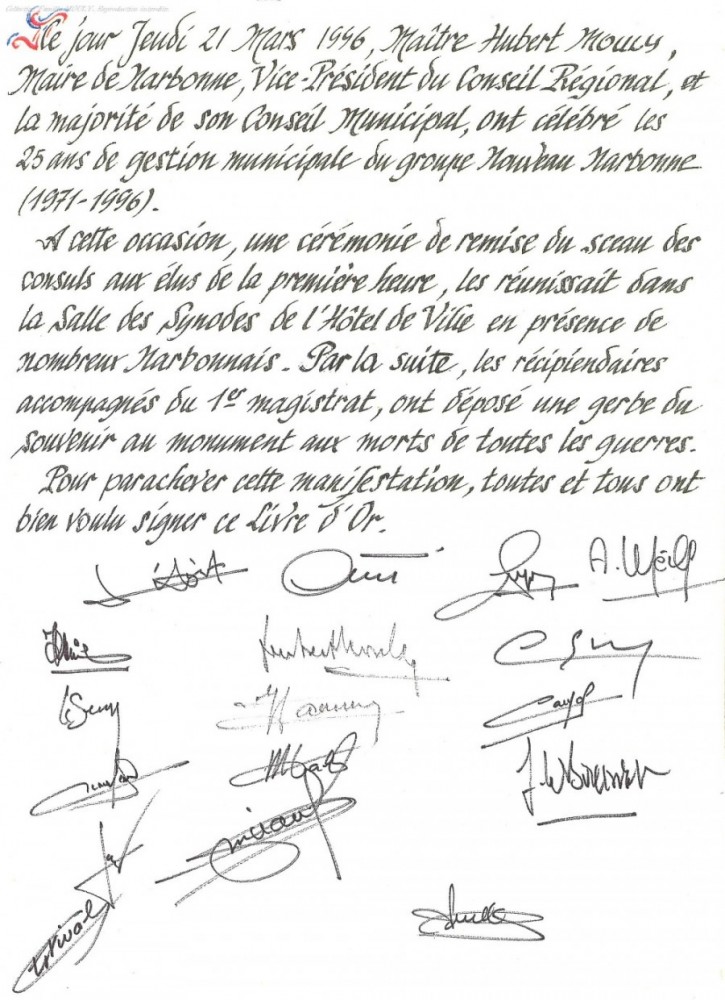 Collection Famille MOULY, Reproduction interdite
Ce jour Jeudi 21 Mars 1996, Maître Hubert MOULY,
Maire de Narbonne, Vice-Président du Conseil Régional, et
la majorité de son Conseil Municipal, ont célébré les
25 ans de gestion municipale du groupe Nouveau Narbonne
(1971-1996).
A cette occasion, une cérémonie de remise du sceau des
consuls aux élus de la première heure, les réunissait dans
la Salle des Synodes de l'Hôtel de Ville en présence de
nombreux Narbonnais. Par la suite, les récipiendaires
accompagnés du 1er magistrat, ont déposé une gerbe du
souvenir au monument aux morts de toutes les guerres.
Pour parachever cette manifestation, toutes et tous ont
bien voulu signer ce Livre d'Or.
Hubert Mouly